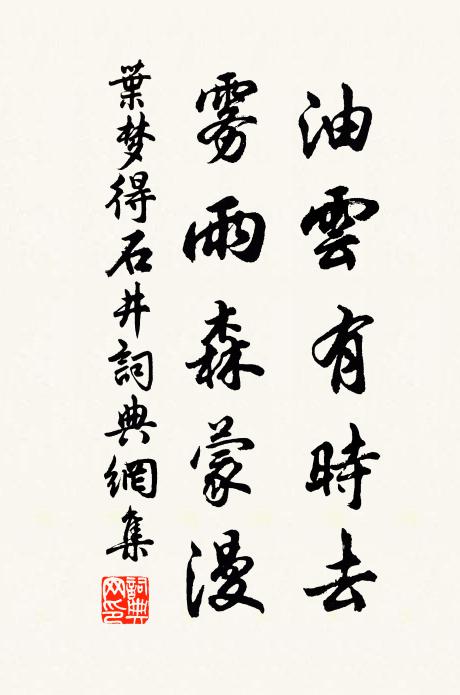 油雲有時去
雾雨森蒙漫
葉梦得石井詞典網集
詞典
文印